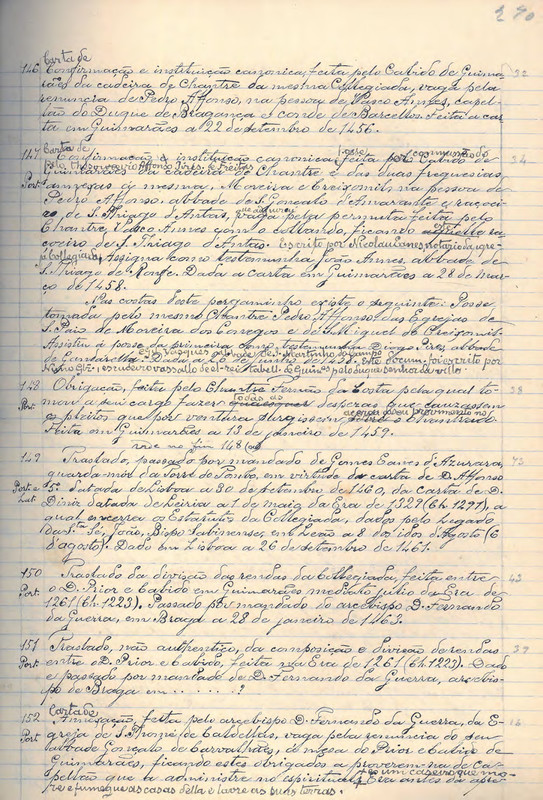 290
Carta de
146 Confirmação e instituição canonica, feita pelo Cabido de Guima- 32
rães da cadeira de Chantre da mesma Collegiada, vaga pela
renuncia de Pedro Affonso, na pessoa de Vasco Annes, capel-
lão do Duque de Bragança e Conde de Barcellos. Feita a car-
ta em Guimarães a 22 de setembro de 1456.
Carta de
147 Confirmação e instituição canonica, feita por Cabido de 34
Guimarães da cadeira de Chantre e das duas freguesias
Port annexas á mesma, Moreira e Creixomil, na pessoa de
Pedro Affonso, abbade de S. Gonçalo d'Amarante e raçoei-
ro de S. Thiago d'Antas, vaga pela permuta feita pelo
Chantre Vasco Annes com o collando, ficando aquelle ra-
çoeiro de S. Thiago d'Antas. Escripta por Nicolau Annes notario da igre-
ja Collegiada. Assigna como testemunha João Annes, abbade de
S. Thiago de Ronfe. Dada a carta em Guimarães a 28 de mar-
ço de 1458.
Nas costas deste pergaminho existe o seguinte: Posse
tomada pelo mesmo Chantre Pedro Affonso das Egrejas de
S. Paio de Moreira dos Conegos e de S. Miguel de Creixomil.
Assistiu á posse da primeira como testemunha Diogo Pires, abbade
de Gandarella.
148 Obrigação, feita pelo Chantre Fernão da Costa pela qual to- 38
Port. mou a seu cargo fazer todas as despezas que causassem
os pleitos que por ventura surgissem
Feita em Guimarães a 13 de janeiro de 1459.
vide no fim 148 (a)
149 Traslado, passado por mandado de Gomes Eanes d'Azurara, 73
guarda-mór da Torre do Tombo, em virtude da carta de D. Affonso
Port e Lat. 5º datada de Lisboa a 30 de setembro de 1460, da carta de D.
Diniz datada de Leiria a 1 de maio da Era de 1329 (Ch. 1291), a
qual encerra os Estatutos da Collegiada, dados pelo Legado
da Sta. Sé, João, Bispo Sabinense, em Leão a 8 dos idos d'Agosto (6
d'agosto). Dado em Lisboa a 26 de setembro de 1461.
150 Traslado da divisão das rendas da Collegiada, feita entre 43
Port. o D. Prior e Cabido em Guimarães mediato julio da Era de
1261 (Ch. 1223). Passado por mandado do arcebispo D. Fernando
da Guerra, em Braga a 28 de janeiro de 1463.
151 Traslado, não authentico, da composição e divisão de rendas 39
Port entre o D. Prior e Cabido, feita na Era de 1261 (Ch. 1223). Dado
e passado por mandado de D. Fernando da Guerra, arcebis-
po de Braga em . . . . . . ?
Carta de
152 Annexação, feita pelo arcebispo D. Fernando da Guerra, da E- 16
Port greja de S. Thomé de Caldellas, vaga pela renuncia do seu
abbade Gonçalo de Carvalhaes, á meza do Prior e Cabido de
Guimarães, ficando estes obrigados a proverem-na de Ca-
pellão que a administre no espiritual e um caseiro que mo-
re e fumegue as casas della e lavre as suas terras.